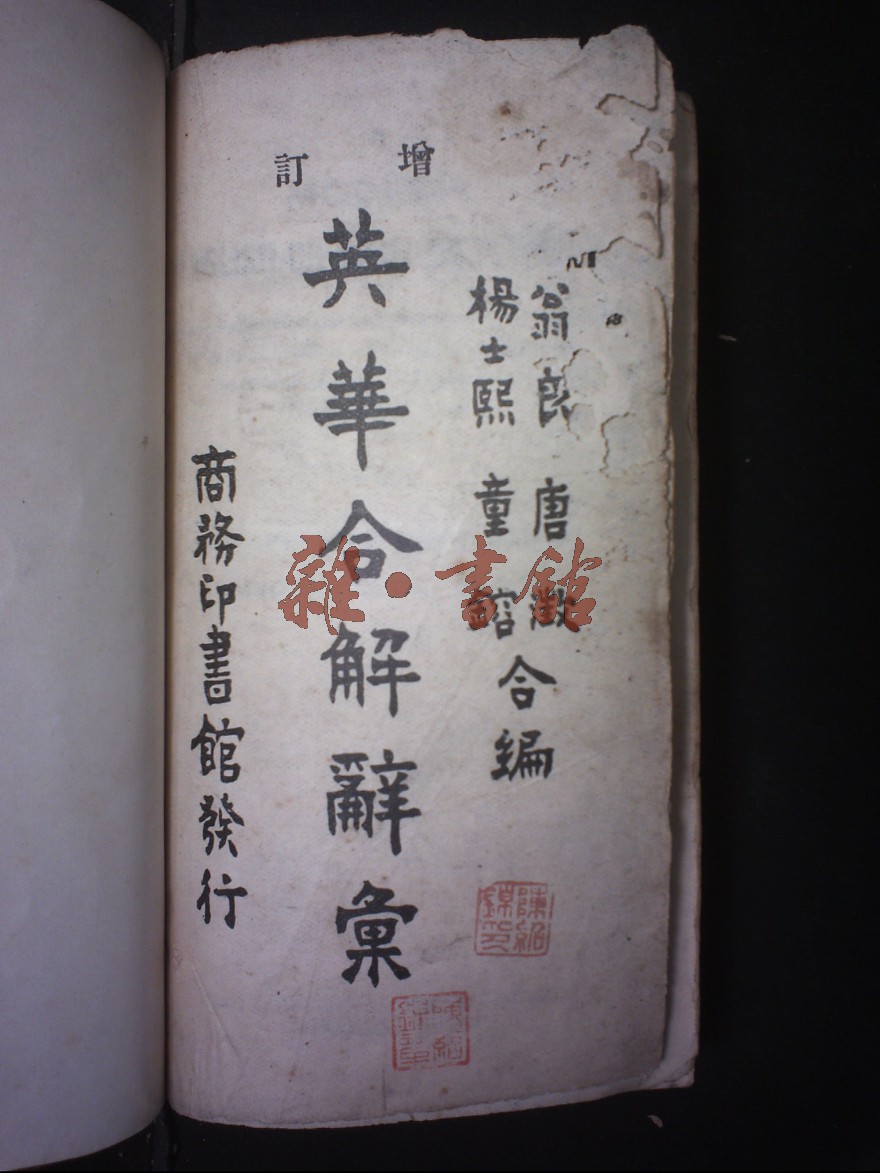 增訂
翁良 唐澂
楊士熙 童鎔
合編
英華合解辭彙
商務印書館發行
雜·書館